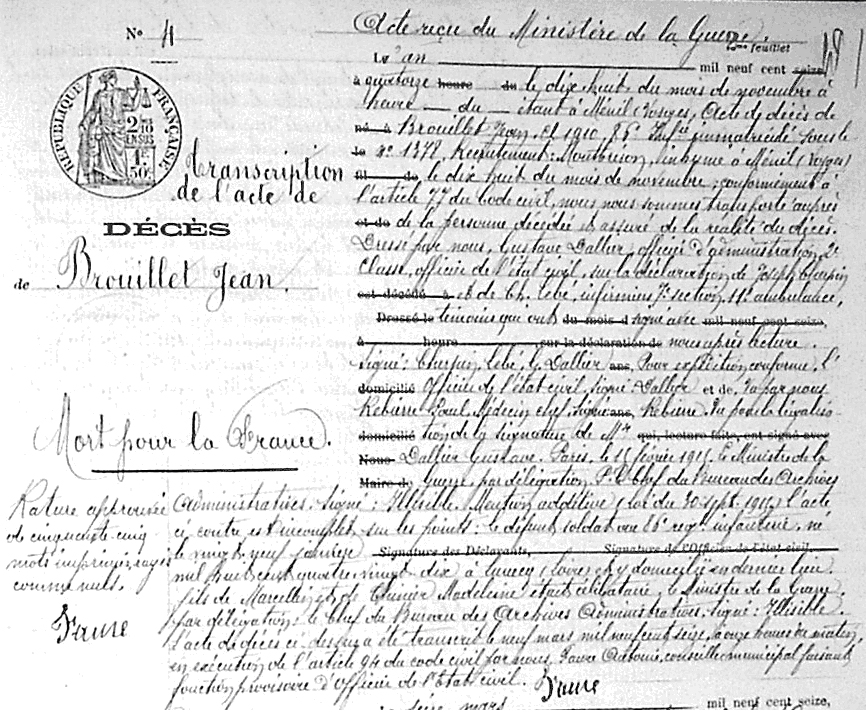 N° 4
Acte reçu du Ministère de la Guerre.
2me feuillet
181
L'an mil neuf cent seize,
à quatorze heure du le dix huit du mois de novembre à
heure du étant à Ménil (Vosges, Acte de décès de
né à Brouillet Jean, Cl 1910 86e Infrie immatriculé sous le
le n° 1378. Recrutement: Montbrison, à Ménil (Vosges)
fil de le dix huit du mois de novembre; conformément à
l'article 77 du code civil, nous nous sommes transporté auprès
et de de la personne décédée et assuré de la réalité du décès.
Dressé par nous, Gustave Dallier, officier d'administration 2e
Classe, officier de l'état civil, sur la déclaration de Joseph Cherpin
est décédé à et de Ch. Lebé, infirmiers 7e section, 11e ambulance,
Dressé le témoins qui ont du mois d signé avec mil neuf cent seize,
à heure sur la déclaration de nous après lecture.
signé: Cherpin, Lebé, G. Dallier ans, Pour expédition conforme, l'
domicilié Officier de l'état civil, signé Dallier et de, Vu par nous
Rebierre Paul, Médecin chef, signé ans, Rebierre. Vu pour la légalisa-
domicilié tion de la signature de Mr qui, lecture faite, ont signé avec
Nous Dallier Gustave. Paris, le février 1915. le Ministre de la
Maire de Guerre, par délégation, P. le Chef du Bureau des Archives
Administratives. signé: Illisible. Mention additive (loi du 30 sept. 1915) l'acte
ci contre est incomplet sur les points: le défunt soldat au 86e régt infanterie, né
le vingt neuf janvier Signature des Déclarants, Signature de l'Officier de l'état civil.
mil huit cent quatre vingt dix à (Loire) et y domicilié en dernier lieu
fils de Marcellin et de Madeleine était célibataire, le Ministre de la Guerre
par délégation, le Chef du Bureau des Archives Administratives, signé: Illisible.
L'acte de décès ci-dessus a été transcrit le neuf mars mil neuf cent seize, à onze heures du matin,
en exécution de l'article 94 du code civil par nous, Faure Antoine, conseiller municipal faisant
fonction provisoire d'Officier de l'Etat civil. Faure
seize mars mil neuf cent seize,
RÉPUBLIQUE FRANÇAISE
2/10 EN SUS
1F 50C
Transcription
de l'acte de
DÉCÈS
de Brouillet Jean
Mort pour la France.
Rature approuvée
de cinquante cinq
mots imprimés rayés
comme nuls.
Faure